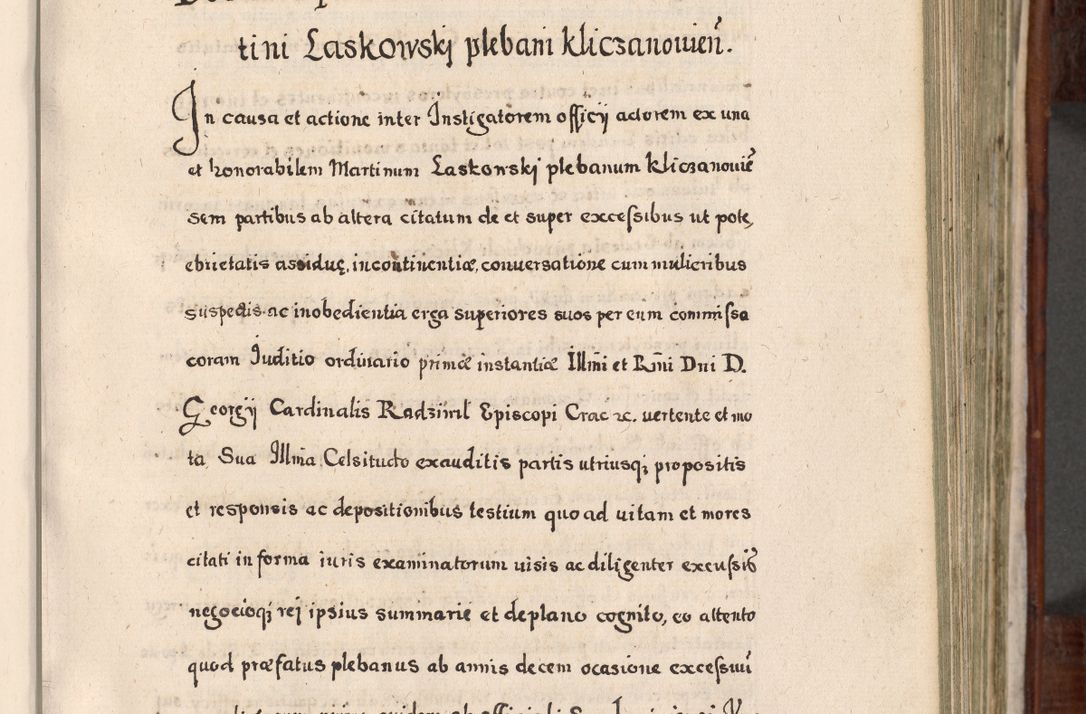 tini Laskowskj plebani kliczanouien̄.
In causa et actione inter Instigatorem officij actorem ex una
et honorabilem Martinum Laskowskj plebanum kliczanouiē
sem partibus ab altera citatum de et super excessibus ut pote,
ebrietatis assiduę, incontinentiæ, conuersatione cum mulieribus
suspectis ac inobedientia erga superiores suos per eum commissa
coram Iuditio ordinario primæ instantiæ Illm̄i et Rm̄i Dni D.
Georgij Cardinalis Radziuil Episcopi Crac ꝛc. uertente et mo
ta, Sua Illma Celsitudo exauditis partis utriusq; propositis
et responsis ac depositionibus testium quo ad uitam et mores
citati in forma iuris examinatorum uisis ac diligenter excussis
negocioq; rej ipsius summarie et deplano cognito, eo attento
quod præfatus plebanus ab annis decem ocasione excessuū